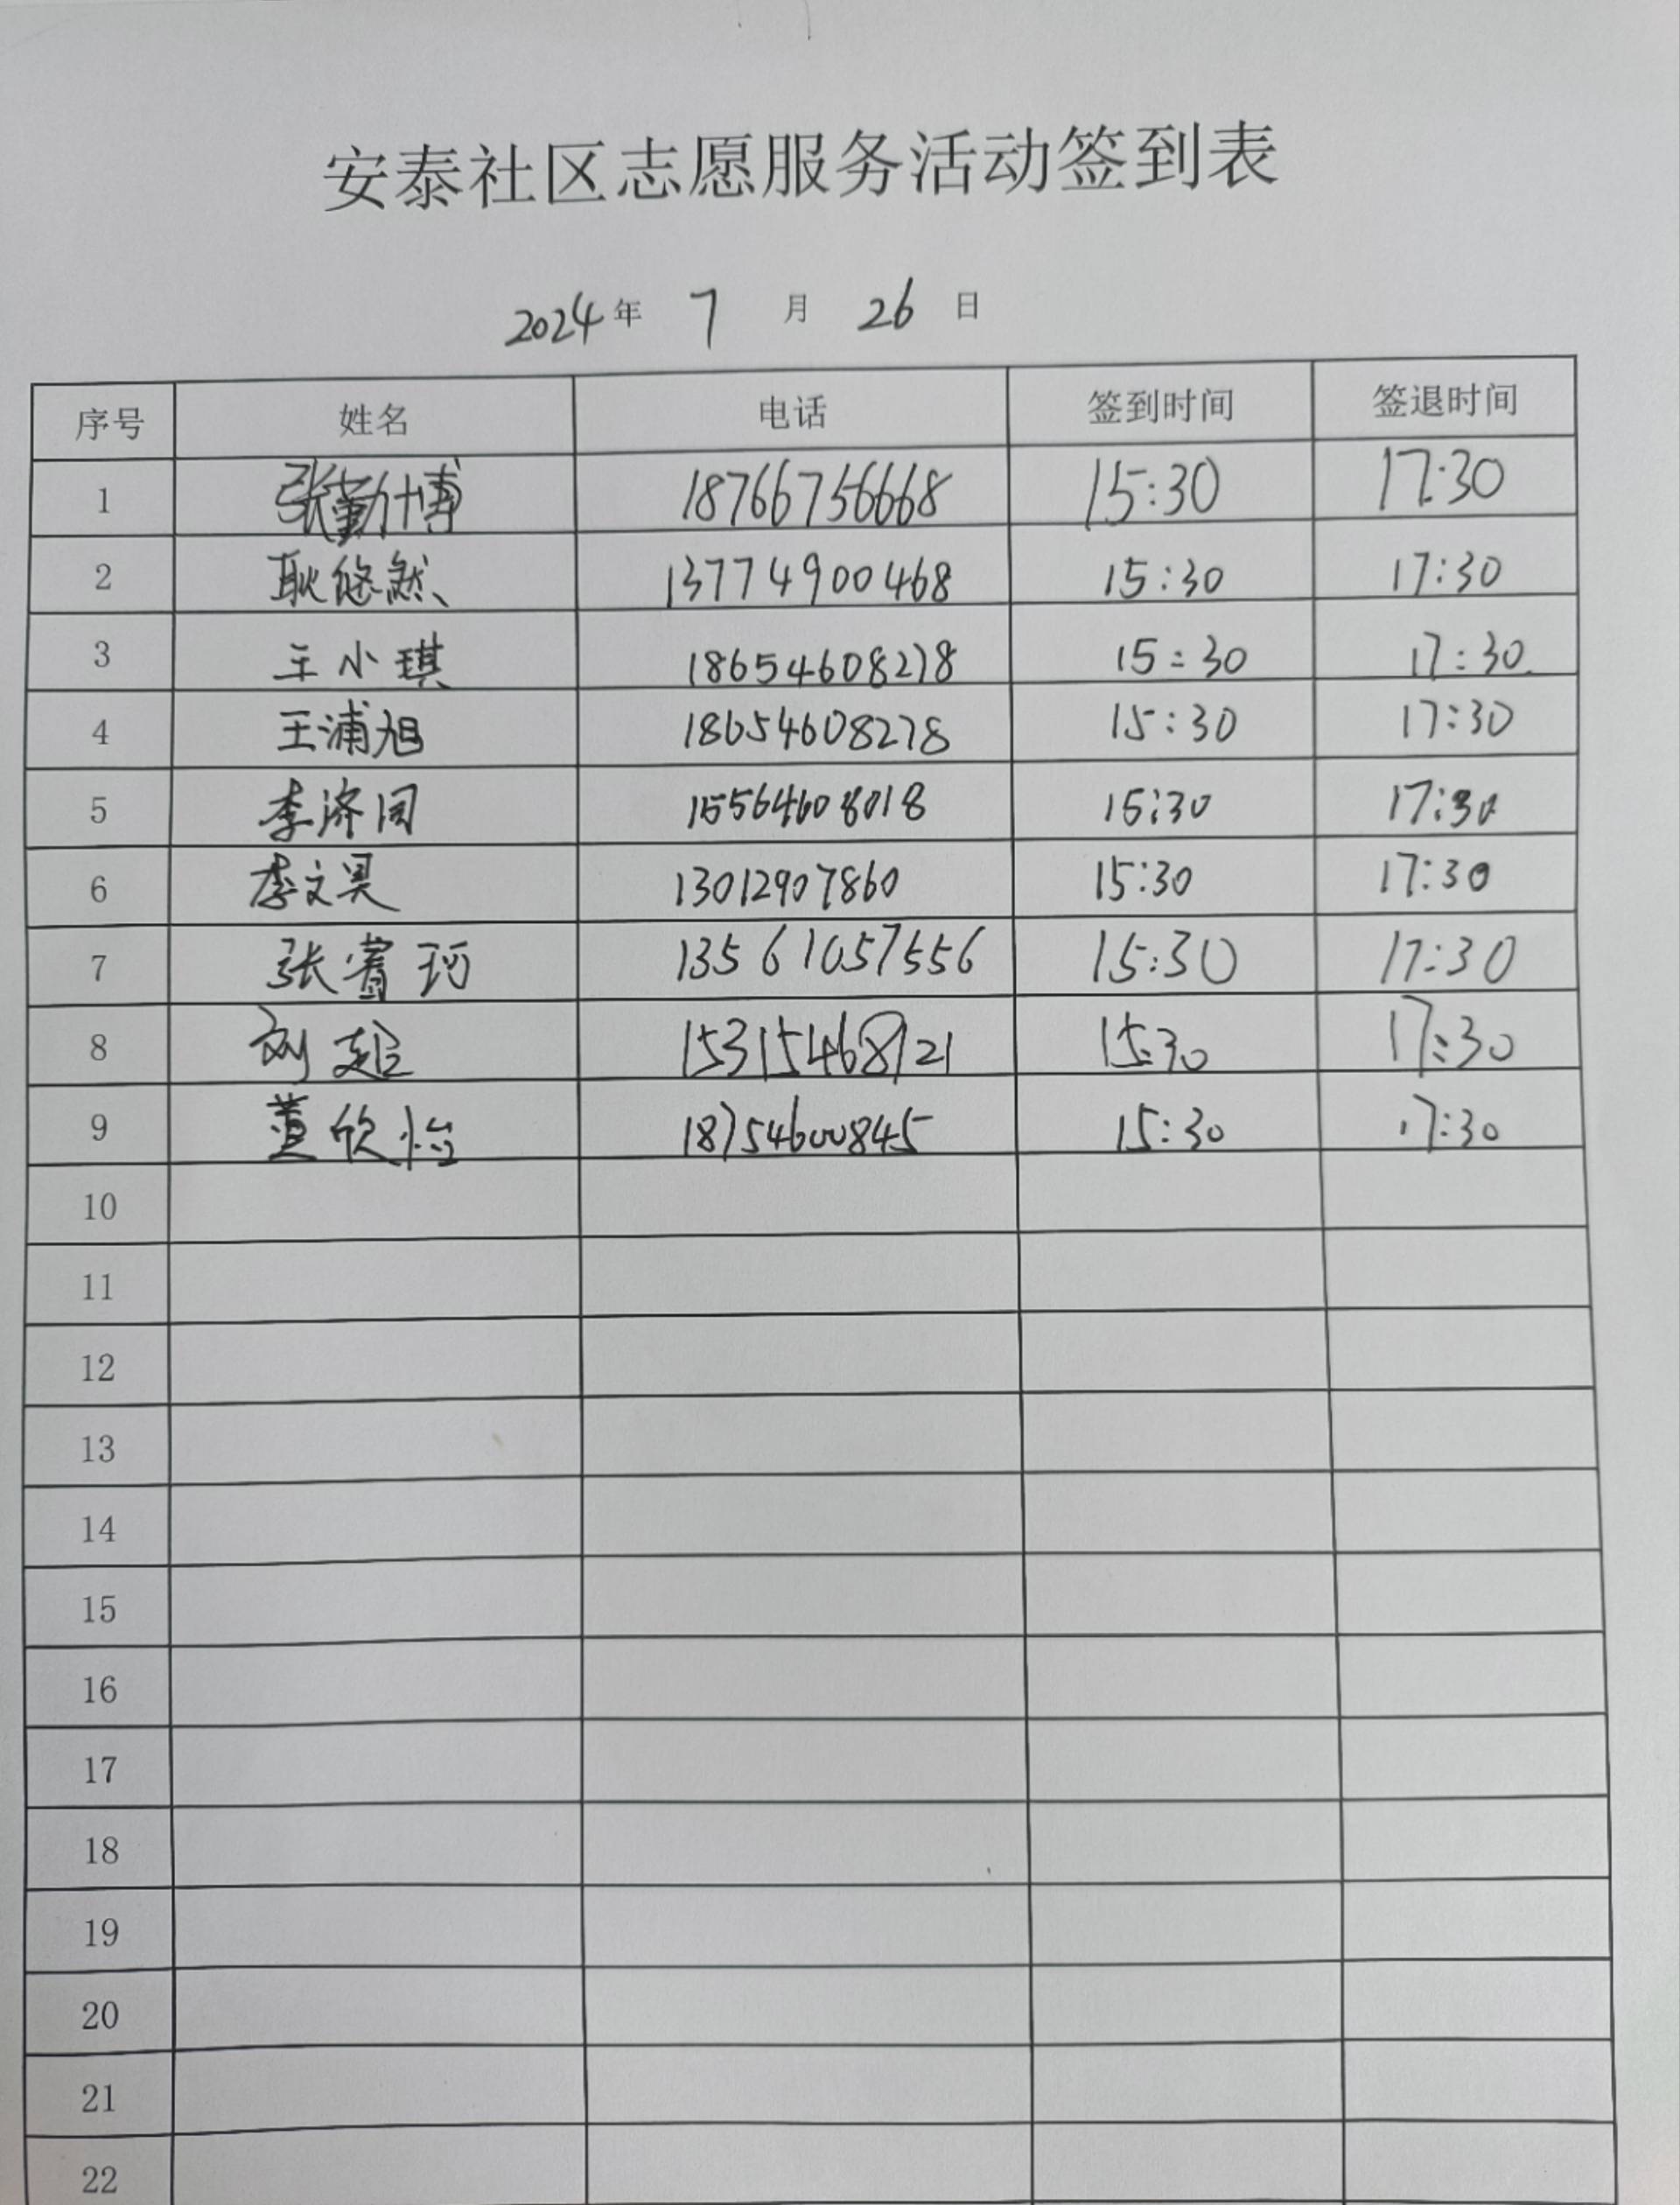 安泰社区志愿服务活动签到表
2024年 7 月 26 日
序号 姓名 电话 签到时间 签退时间
1 张勤博 18766756668 15:30 17:30
2 耿悠然 13774900468 15:30 17:30
3 王小琪 18654608278 15:30 17:30
4 王浦旭 18654608278 15:30 17:30
5 李济同 15564608018 15:30 17:30
6 李文昊 13012907860 15:30 17:30
7 张睿珂 13561057556 15:30 17:30
8 刘起 15315468121 15:30 17:30
9 董欣怡 18754600845 15:30 17:30
10
11
12
13
14
15
16
17
18
19
20
21
22